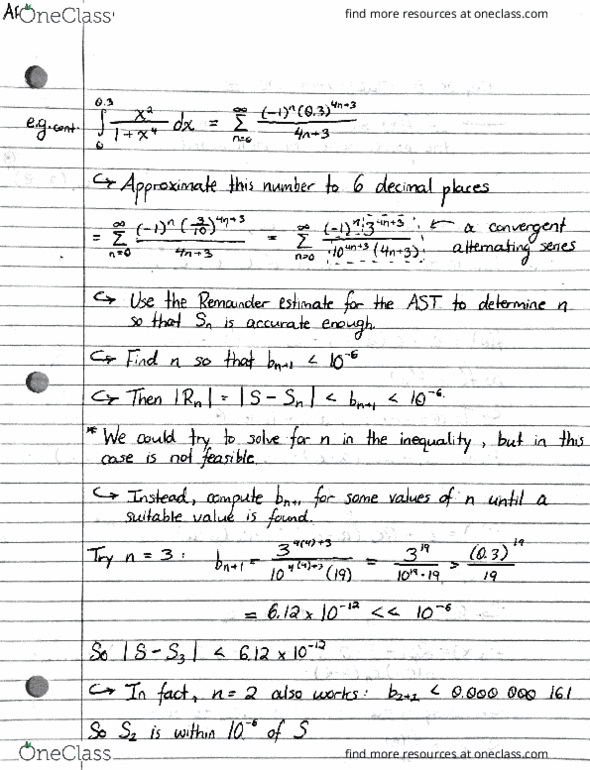 OneClass
find more resources at oneclass.com
e.g. cont. ∫₀^0.3 x²/(1+x⁴) dx = ∑_{n=0}^∞ (-1)ⁿ(0.3)^{4n+3}/(4n+3)
↳ Approximate this number to 6 decimal places
= ∑_{n=0}^∞ (-1)ⁿ(3/10)^{4n+3}/(4n+3) = ∑_{n=0}^∞ (-1)ⁿ3^{4n+3}/(10^{4n+3}(4n+3)) ← a convergent
alternating series
↳ Use the Remainder estimate for the AST to determine n
so that Sₙ is accurate enough.
↳ Find n so that bₙ₊₁ < 10⁻⁶
↳ Then |Rₙ| = |S - Sₙ| < bₙ₊₁ < 10⁻⁶.
* We could try to solve for n in the inequality, but in this
case is not feasible.
↳ Instead, compute bₙ₊₁ for some values of n until a
suitable value is found.
Try n = 3: bₙ₊₁ = 3^{4(4)+3}/(10^{4(4)+3}(19)) = 3¹⁹/(10¹⁹·19) > (0.3)¹⁹/19
= 6.12 x 10⁻¹² << 10⁻⁶
So |S - S₃| < 6.12 x 10⁻¹²
↳ In fact, n = 2 also works: b₂₊₁ < 0.000 000 161
So S₂ is within 10⁻⁶ of S
OneClass
find more resources at oneclass.com